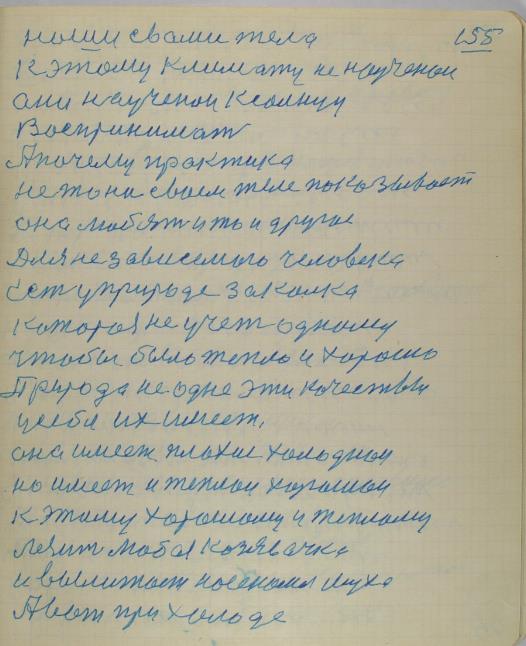 наши свами тела 155
К этому Климату не наученои
они наученои К солнцу
Воспринимат
А почему практика
не то на своем теле показывает
она любят и то и другое
Для независемого человека
Ест у природе закалка
которая не учет одному
чтобы было тепло и хорошо
Природа не одне эти качествы
у себя их имеет,
она имеет плохие холоднои
но имеет и теплои хорошои
К этому хорошому и теплому
лезит любая Козявачка
и вылитает насекомая муха
А вот при холоде